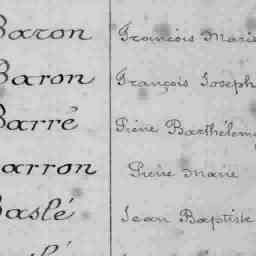 Baron François Marie
Baron François Joseph
Barré Piérre Barthélemy
Barron Piérre Marie
Baslé Jean Baptiste